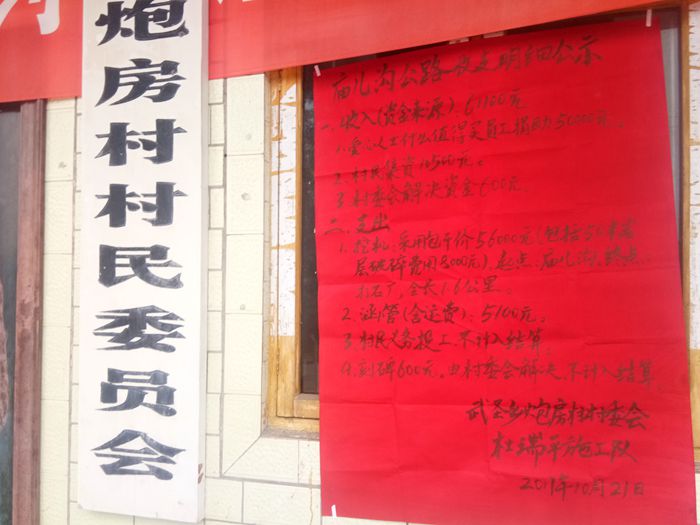 炮房村村民委员会
庙儿沟公路收支明细公示
一、收入(资金来源):61100元
1.爱心人士什么值得买员工捐助50000元。
2.村民集资10500元。
3.村委会解决资金600元。
二.支出
1.挖机:采用包干价56000元(包括
层破碎费用8000元),起点:庙儿沟,终点:
打石厂,全长1.6公里。
2.涵管(含运费):5100元。
3.村民义务投工,不计入结算。
4.刻碑600元,由村委会解决,不计入结算。
武圣乡炮房村村委会
杜端平施工队
2019年10月21日